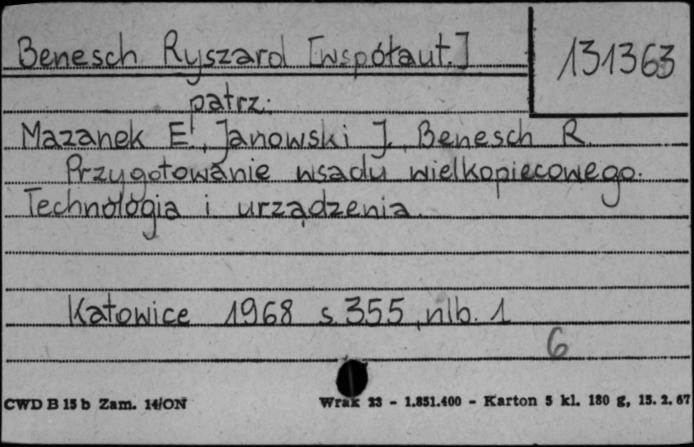 Benesch Ryszard [współaut.]
131363
patrz:
Mazanek E., Janowski J., Benesch R.
Przygotowanie wsadu wielkopiecowego.
Technologia i urządzenia.
Katowice 1968 s. 355, nlb. 1
6
CWD B 15 b Zam. 14/ON
Wrak 23 - 1.851.400 - Karton 5 kl. 180 g, 15. 2. 67